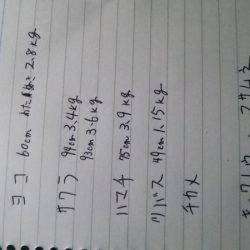 ヨコ 60cm 2.8kg
サワラ 99cm 3.4kg
93cm 3.6kg
ハマチ 75cm 3.9kg
ツバス 49cm 1.15kg
チカメ